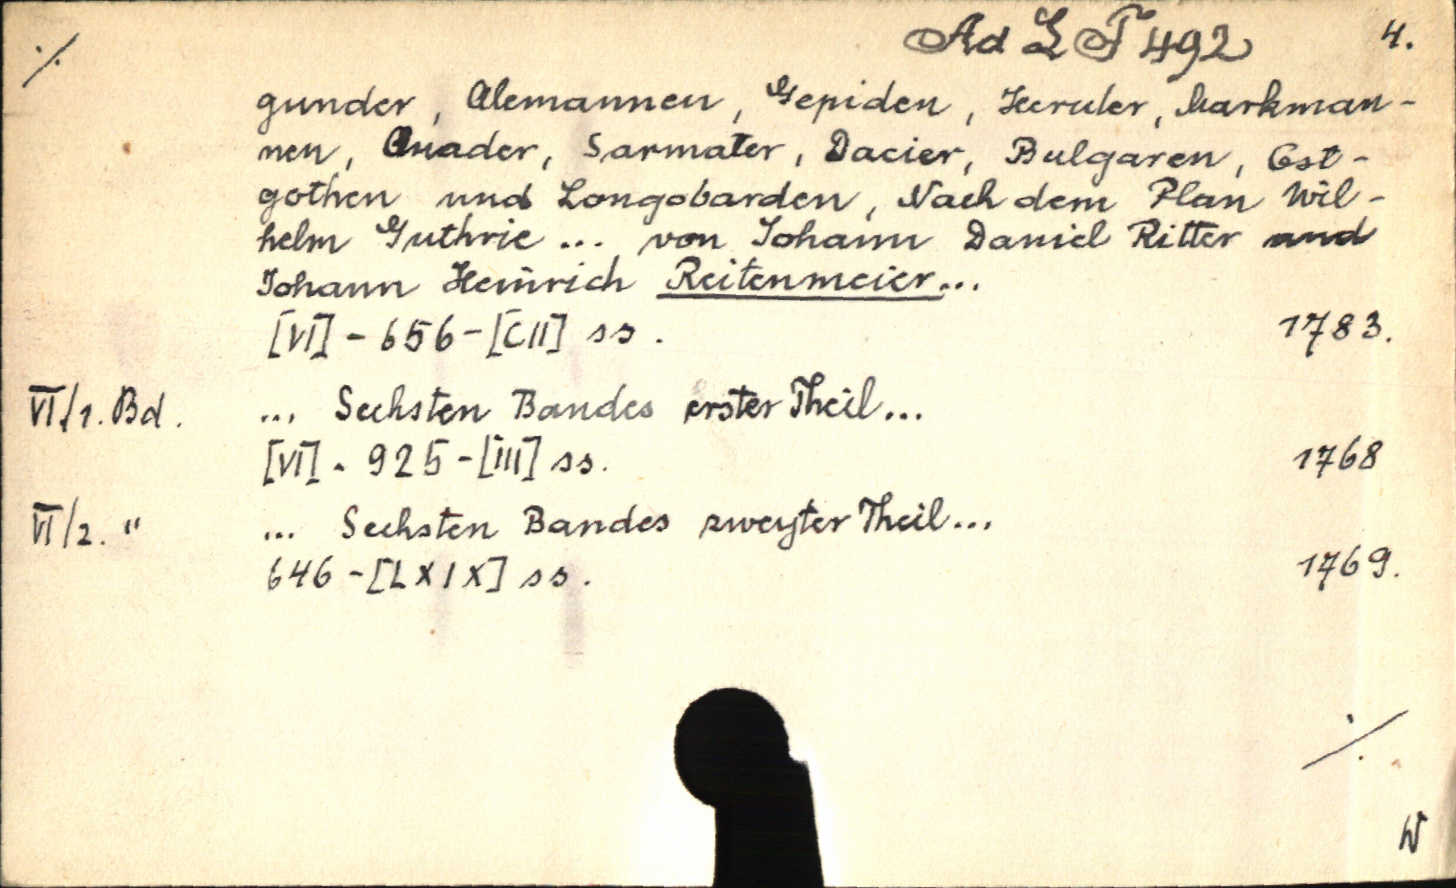 Ad L F 492 4.
./.
gunder, Alemannen, Gepiden, Heruler, Markman-
nen, Quader, Sarmater, Dacier, Bulgaren, Ost-
gothen und Longobarden, Nach dem Plan Wil-
helm Guthrie ... von Johann Daniel Ritter und
Johann Heinrich Reitenmeier...
[VI] - 656 - [CII] ss. 1783.
VI/1. Bd. ... Sechsten Bandes erster Theil...
[VI] - 925 - [III] ss. 1768
VI/2. " ... Sechsten Bandes zweyter Theil...
646 - [LXIX] ss. 1769.
./.
W